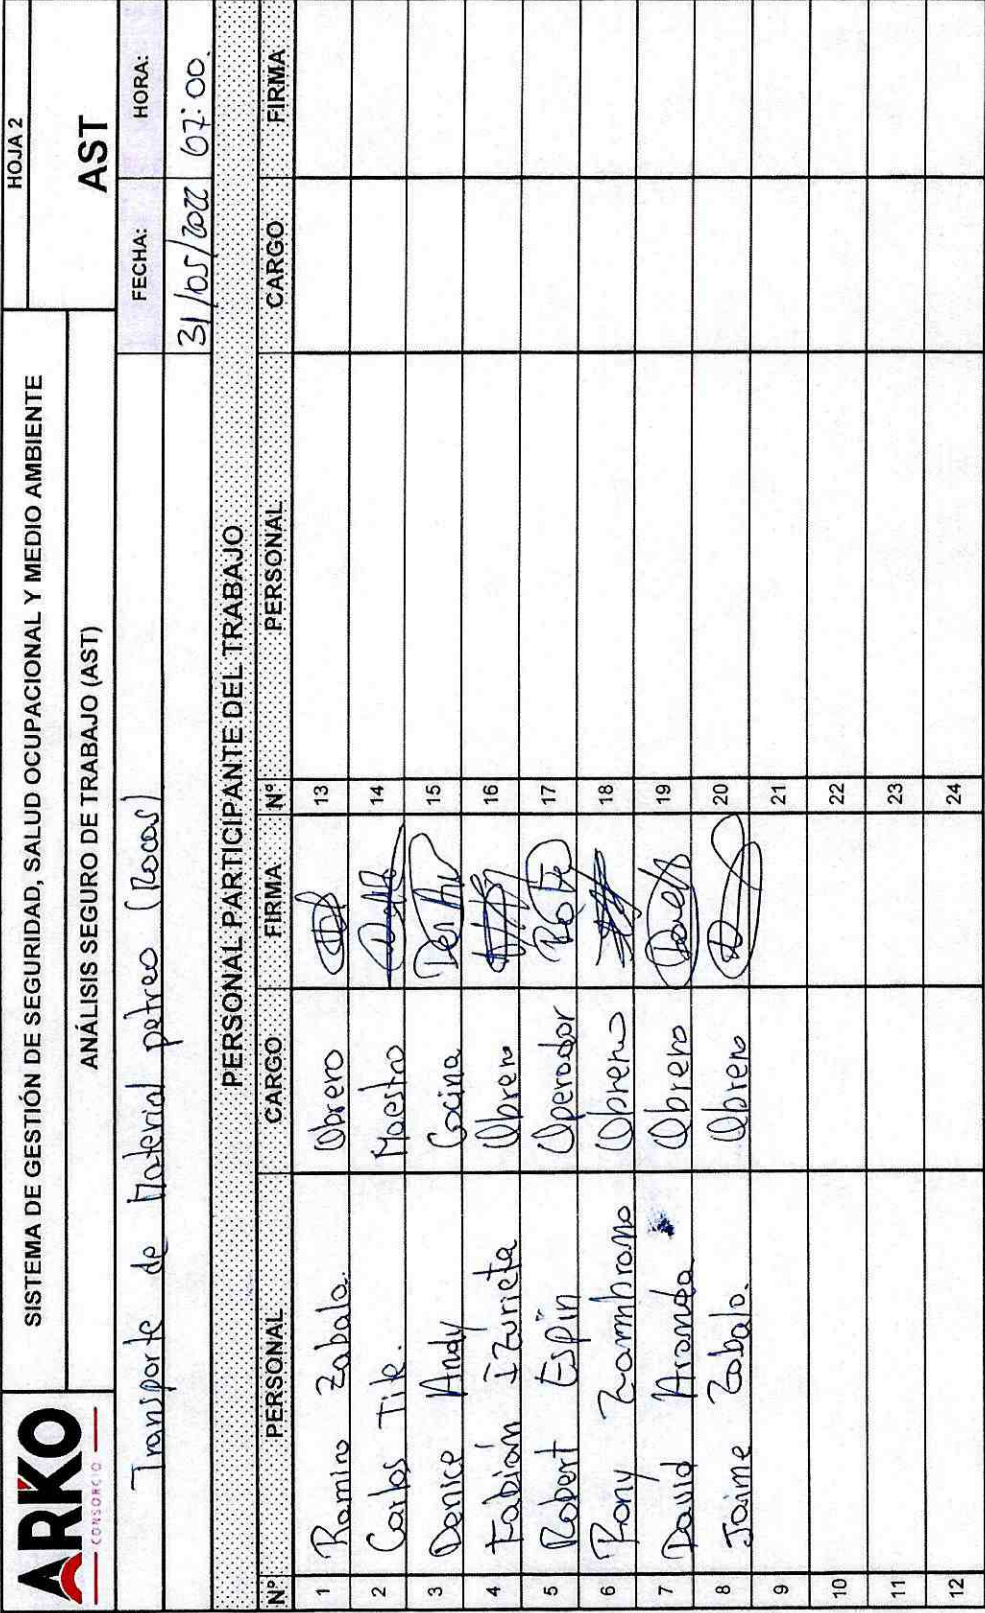 ARKO
CONSORCIO
SISTEMA DE GESTIÓN DE SEGURIDAD, SALUD OCUPACIONAL Y MEDIO AMBIENTE
HOJA 2
ANÁLISIS SEGURO DE TRABAJO (AST)
AST
Transporte de Material petreo (Rocas)
FECHA: HORA:
31/05/2022 07:00.
PERSONAL PARTICIPANTE DEL TRABAJO
Nº PERSONAL CARGO FIRMA Nº PERSONAL CARGO FIRMA
1 Ramiro Zabala. Obrero 13
2 Carlos Tite. Maestro 14
3 Denice Andy Cocina 15
4 Fabián Izurieta Obrero 16
5 Robert Espin Operador 17
6 Rony Zambrano Obrero 18
7 David Aranda Obrero 19
8 Jaime Zabala. Obrero 20
9 21
10 22
11 23
12 24